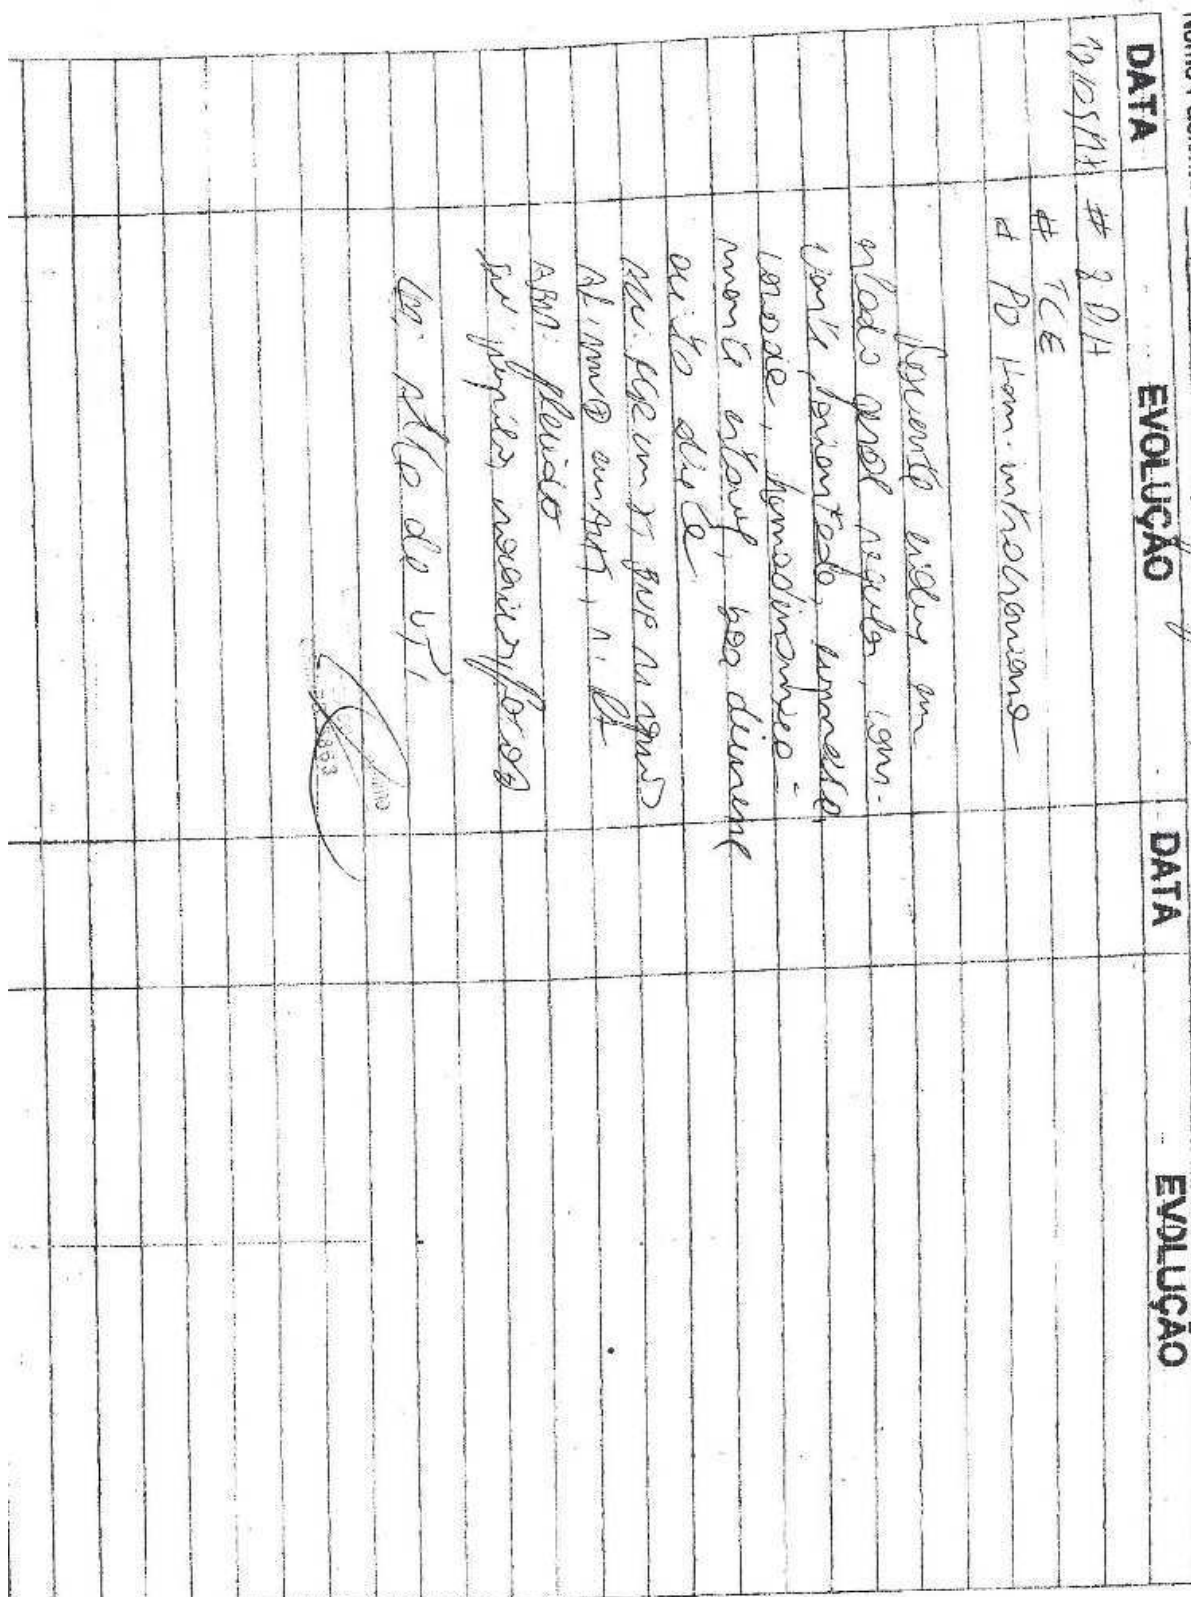 DATA EVOLUÇÃO DATA EVOLUÇÃO
# 8 DIH
# TCE
# PO Hem. intracraniano
Paciente evolui em
estado geral regular, cons-
ciente, orientado,
corado, hemodinamica-
mente estavel, boa diurese
dieta
ACV: RCR em 2T BNF
AR: MV em AHT, s/ RA
ABD: flacido
SN: pupilas isocoricas
CD: Alta da UTI